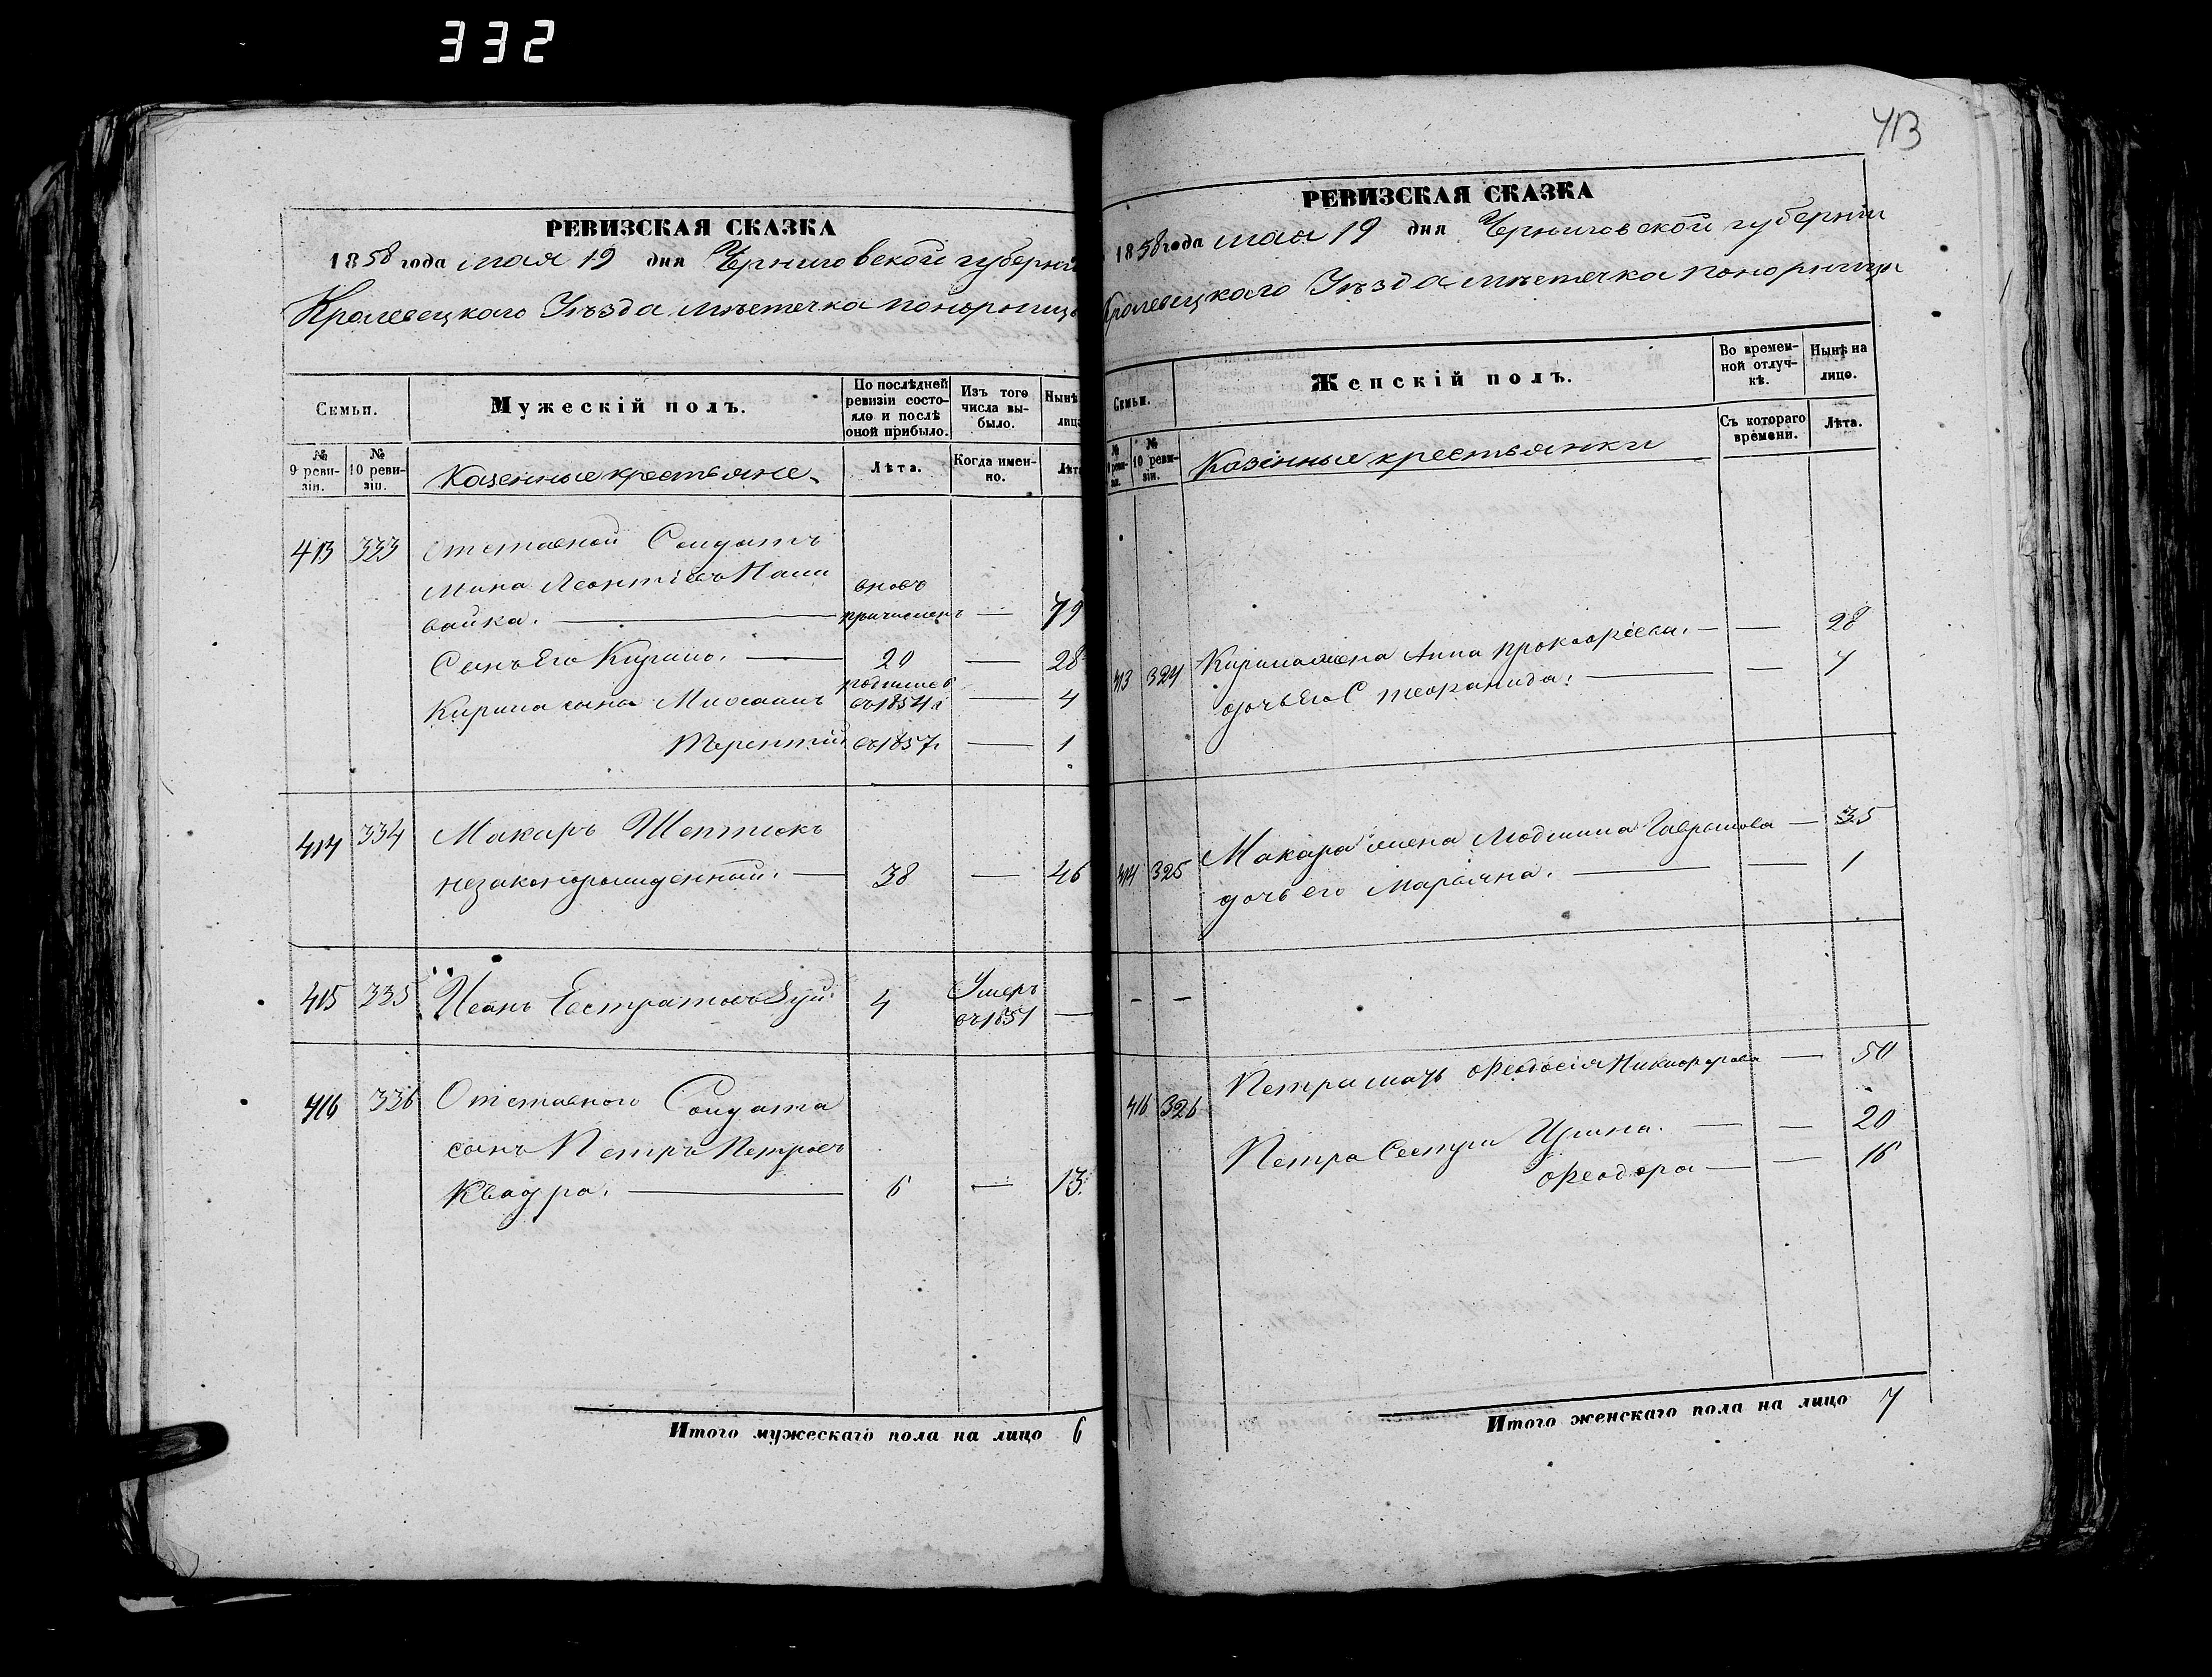 332
РЕВИЗСКАЯ СКАЗКА
1858 года мая 19 дня Черниговской губерніи
Кролевецкаго Уѣзда мѣстечка Понорницы
Семьи.
Мужескій полъ.
По послѣдней ревизіи состояло и послѣ оной прибыло.
Изъ того числа выбыло.
Нынѣ
лицо
№ 9 ревизіи.
№ 10 ревизіи.
Казенные крестьяне.
Лѣта.
Когда именно.
Лѣта
413 333 Отставной Солдатъ
Мина Леонтіевъ Нали вновь
вайка. — причисленъ — 79
Сынъ Его Кирило. — 20 — 28
Кирила сына родился
въ 1854 г — 4
Терентій въ 1857. — 1
414 334 Макаръ
незаконорожденный. — 38 — 46
415 335 Иванъ Евстратовъ 4 Умеръ
въ 1851 —
416 336 Отставного Солдата
сынъ Петръ Петровъ
Квадра. — 6 — 13.
Итого мужескаго пола на лицо 6
413
РЕВИЗСКАЯ СКАЗКА
1858 года мая 19 дня Черниговской губерніи
Кролевецкаго Уѣзда мѣстечка Понорницы
Семьи.
Женскій полъ.
Во временной отлучкѣ.
Нынѣ на лицо.
№ 9 ревизіи.
№ 10 ревизіи.
Казенные крестьянки
Съ котораго времени.
Лѣта.
413 324 Кирила жена Анна — — 28
дочь Его — — 7
414 325 Макара жена Гаврилова — 35
дочь его Маріяна. — — 1
- -
416 326 Петра мать Феодосія Никифорова — 50
Петра Сестры Ирина. — — 20
Феодора — — 16
Итого женскаго пола на лицо 7